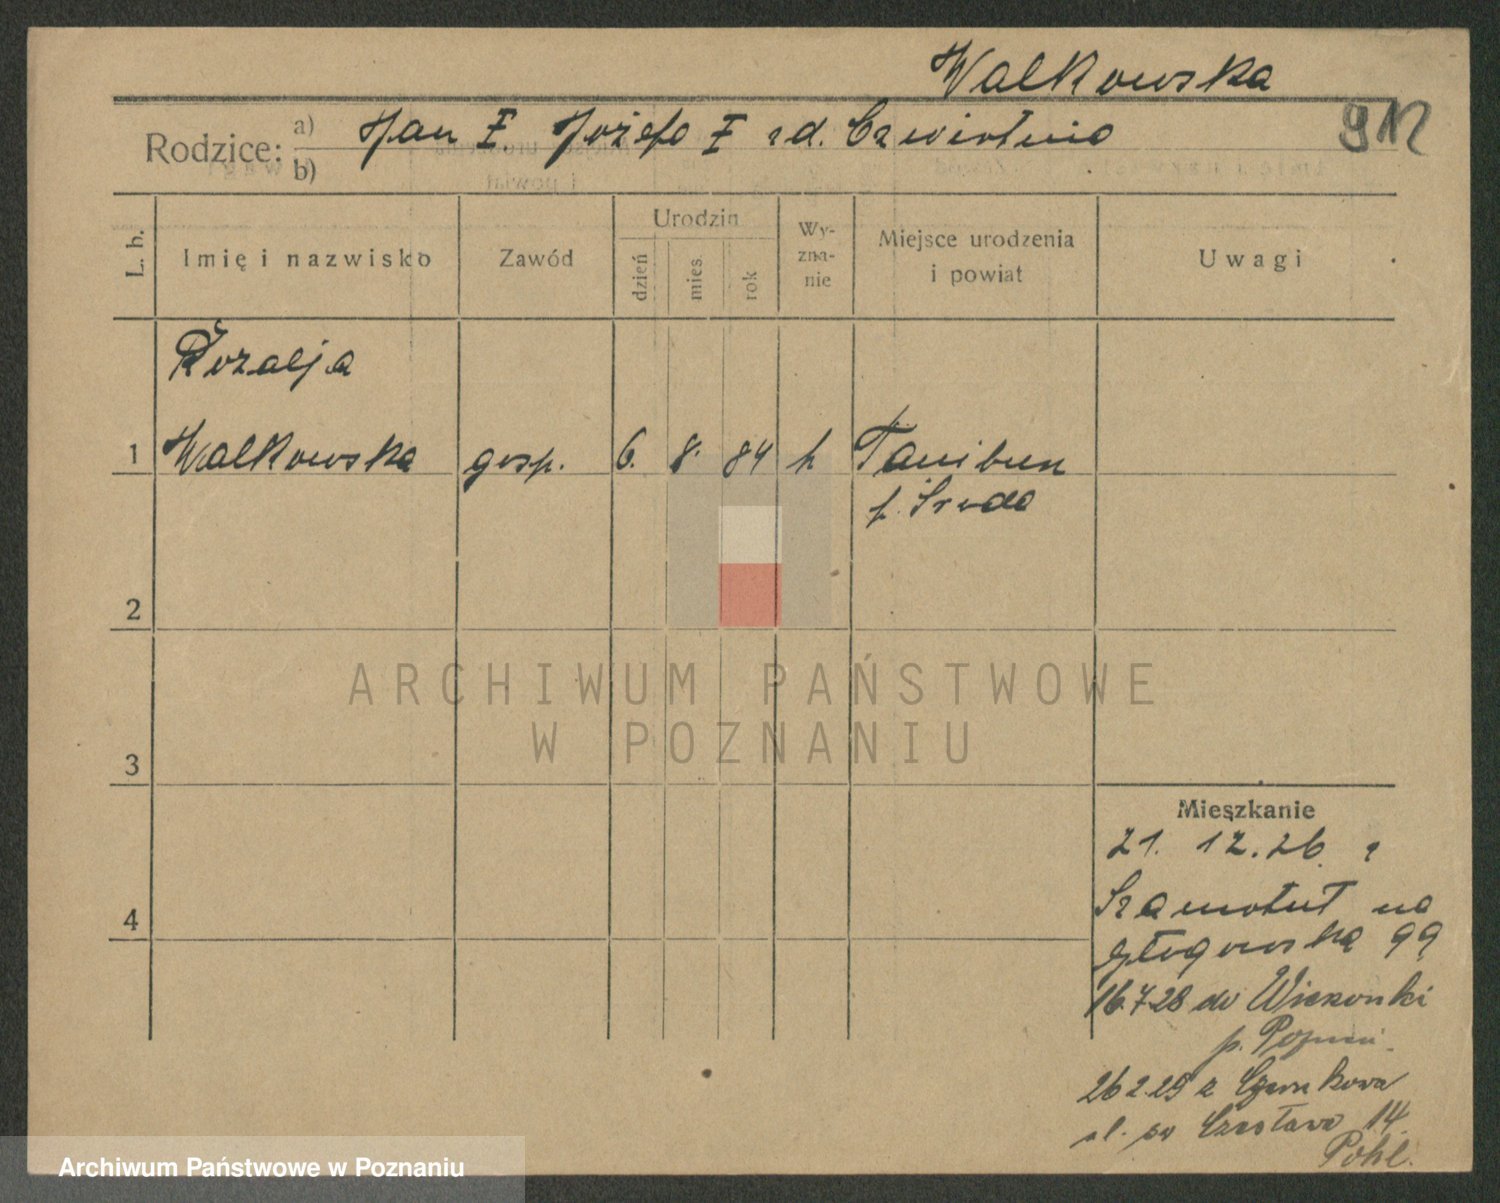 Walkowska
912
Rodzice: a) b)
Jan Józefa zd.
L. b.
Imię i nazwisko
Zawód
Urodzin
dzień
mies.
rok
Wy-
zna-
nie
Miejsce urodzenia
i powiat
Uwagi
Rozalja
1 Walkowska gosp. 6. 8. 84
p. Środa
2
ARCHIWUM PAŃSTWOWE
W POZNANIU
3
Mieszkanie
21. 12. 26. z
Szamotuł na
Głogowską 99
16.7.28 do
p.
26 2 29 z Czarnkowa
ul. św Czesława 14.
Pohl.
4
Archiwum Państwowe w Poznaniu